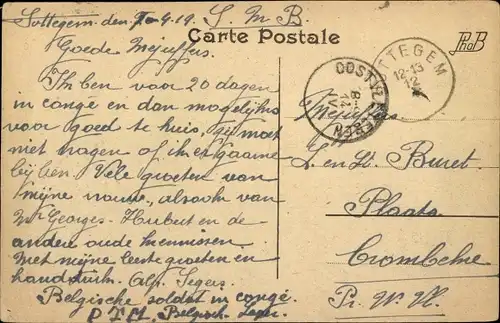 Sottegem den 10-4-19. S. M. B.
Carte Postale
PhoB
Goede Mejuffers.
Ik ben voor 20 dagen
in congé en dan mogelijks
voor goed te huis, gij moet
niet vragen of ik er gaarne
bij ben. Vele groeten van
mijne vrouw, alsook van
Mr Georges-Hubert en de
andere oude kennissen.
Met mijne beste groeten en
handdruk. Alf. Segers.
Belgische soldat in congé.
Belgisch Leger.
OTTEGEM
12-13
12
OOST
Mejuffers
L. en St. Buret
Plaats
Crombeke
Pr. W. Vl.